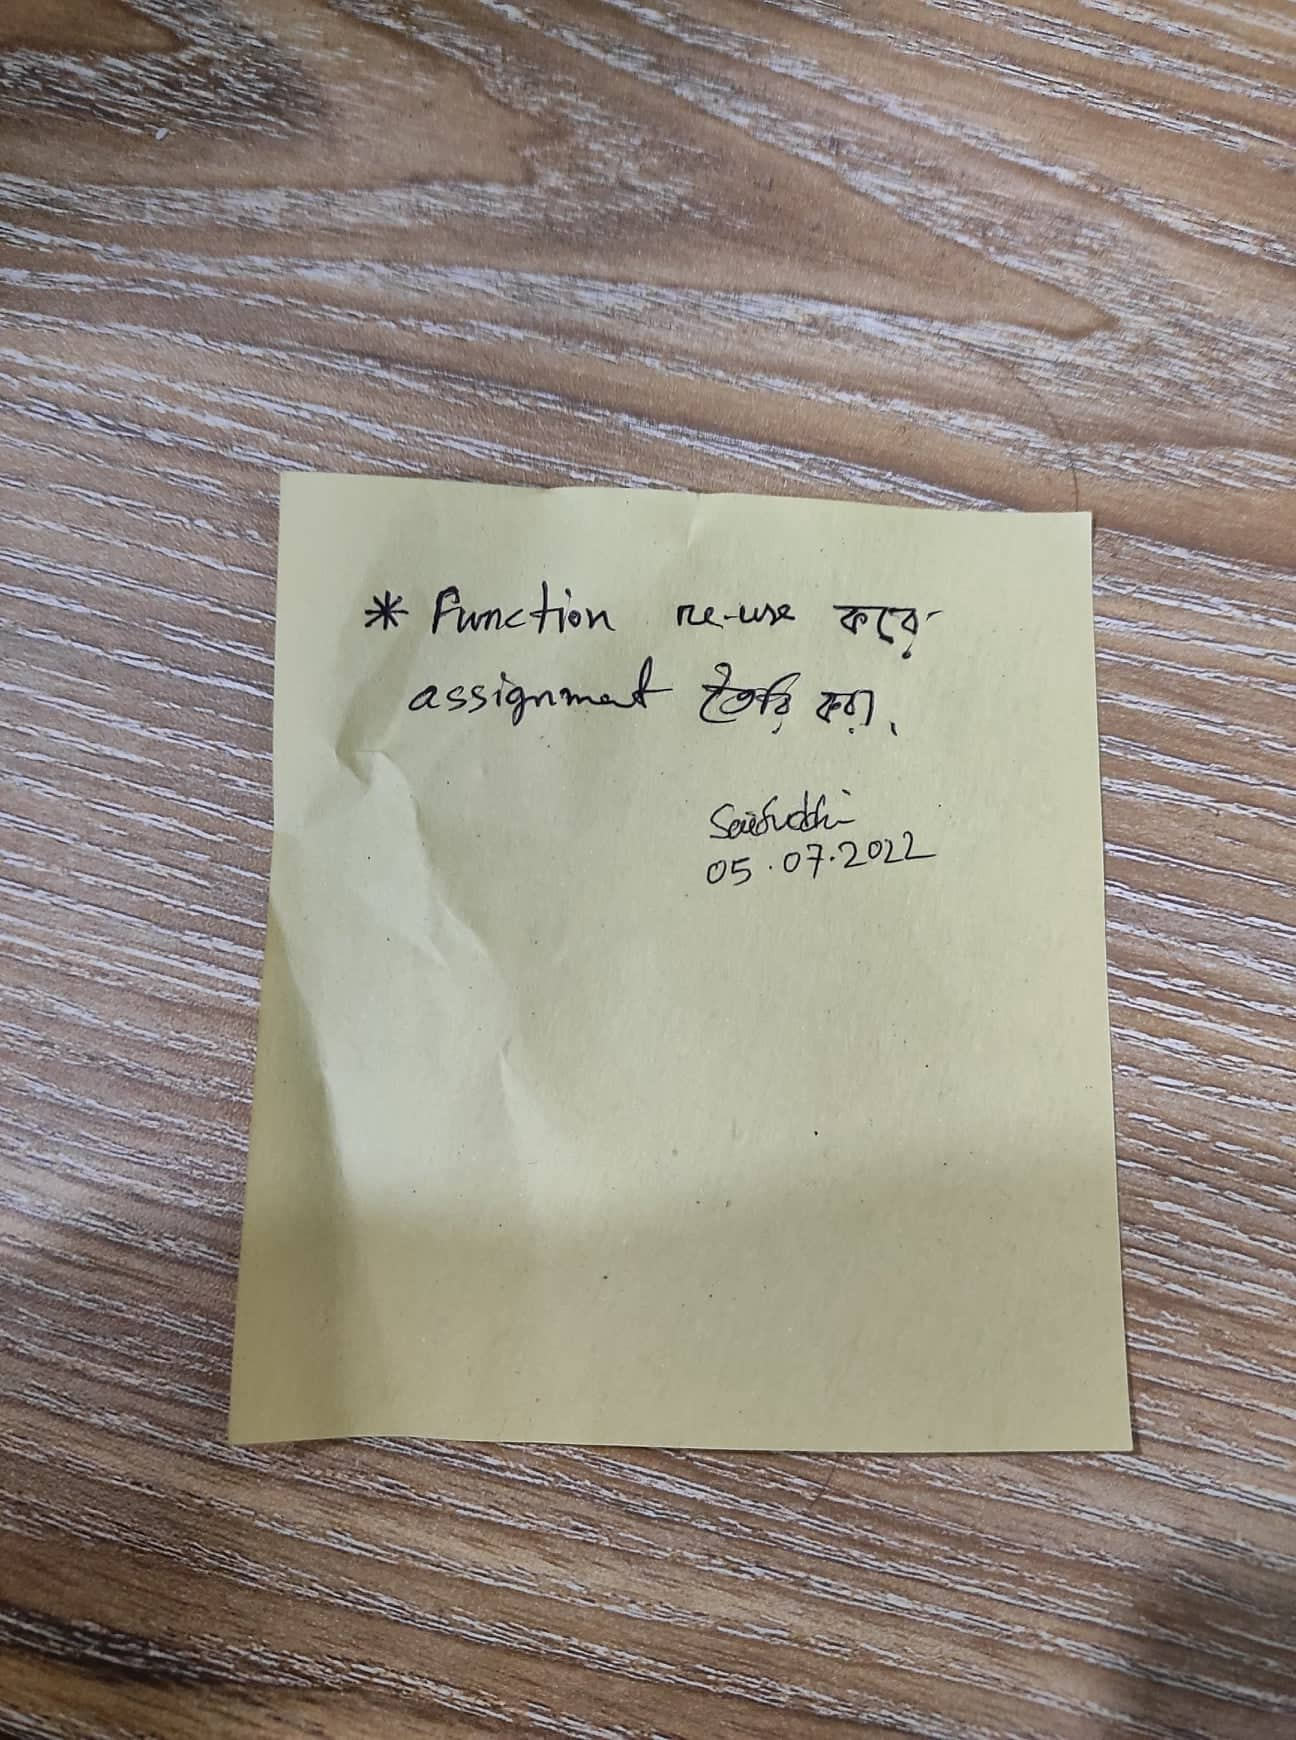 * Function re-use করে
assignment তৈরি করা.
Saifuddin
05.07.2022